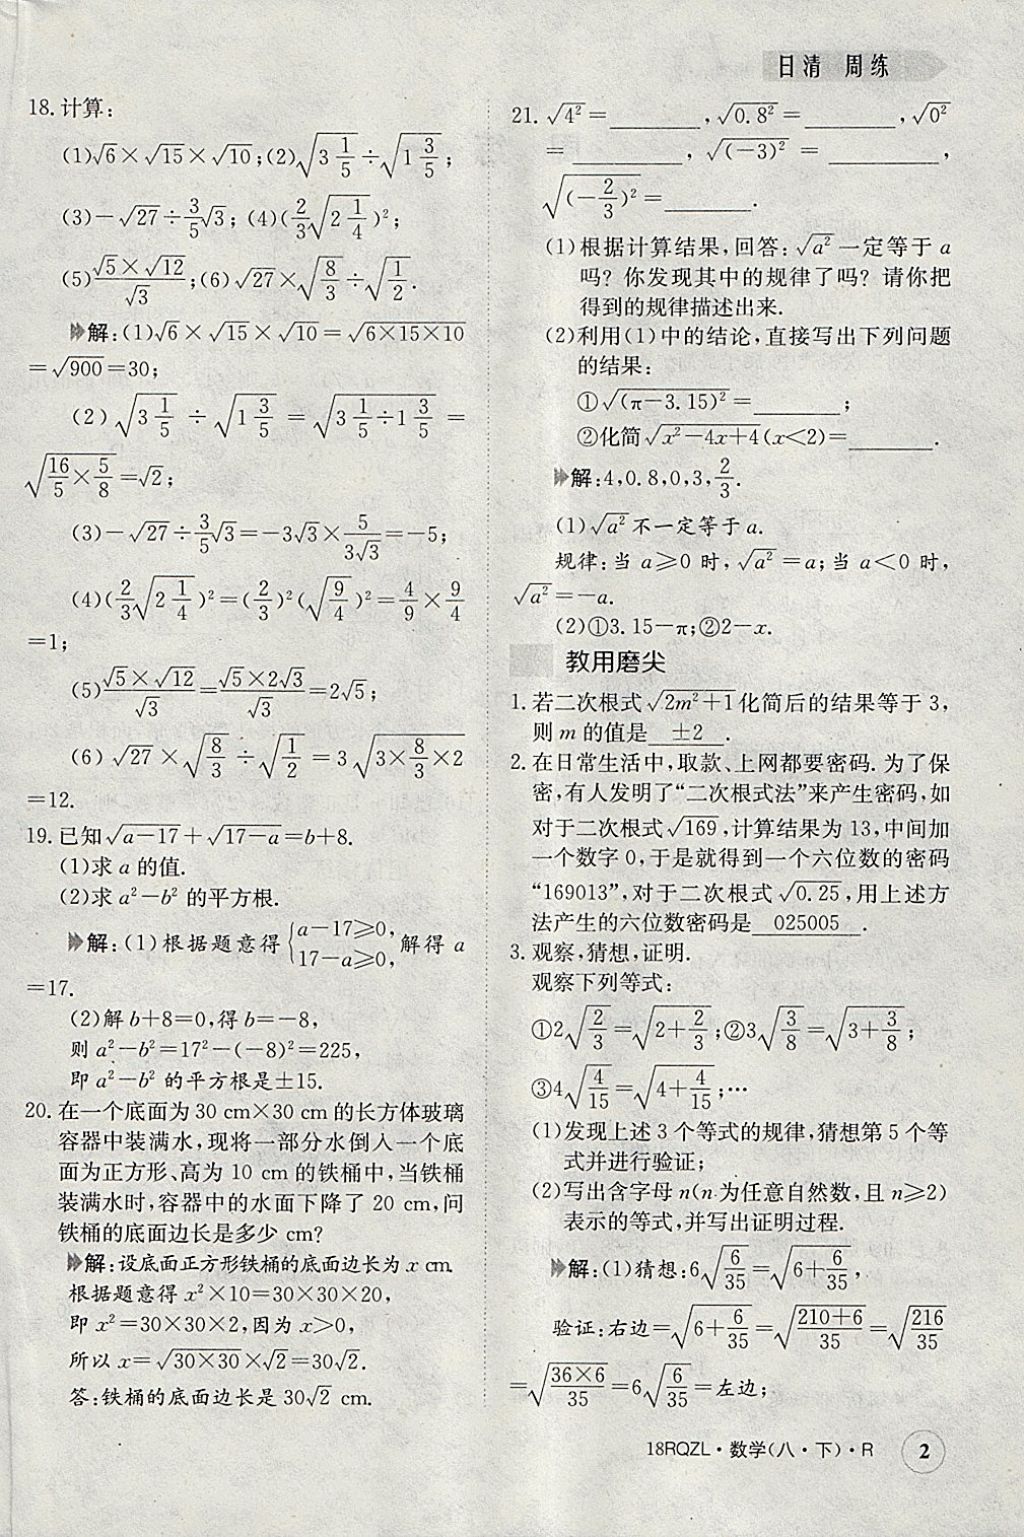 日清 周练
18. 计算:
(1)√6×√15×√10;(2)√(3 1/5)÷√(1 3/5);
(3)-√27÷3/5√3;(4)(2/3√(2 1/4))²;
(5)(√5×√12)/√3;(6)√27×√(8/3)÷√(1/2).
解:(1)√6×√15×√10=√(6×15×10)
=√900=30;
(2)√(3 1/5)÷√(1 3/5)=√(3 1/5÷1 3/5)=
√(16/5×5/8)=√2;
(3)-√27÷3/5√3=-3√3×5/(3√3)=-5;
(4)(2/3√(2 1/4))²=(2/3)²(√(9/4))²=4/9×9/4
=1;
(5)(√5×√12)/√3=(√5×2√3)/√3=2√5;
(6)√27×√(8/3)÷√(1/2)=3√(3×8/3×2)
=12.
19. 已知√(a-17)+√(17-a)=b+8.
(1)求a的值.
(2)求a²-b²的平方根.
解:(1)根据题意得{a-17≥0, 17-a≥0, 解得a
=17.
(2)解b+8=0,得b=-8,
则a²-b²=17²-(-8)²=225,
即a²-b²的平方根是±15.
20. 在一个底面为30 cm×30 cm的长方体玻璃
容器中装满水,现将一部分水倒入一个底
面为正方形、高为10 cm的铁桶中,当铁桶
装满水时,容器中的水面下降了20 cm,问
铁桶的底面边长是多少cm?
解:设底面正方形铁桶的底面边长为x cm.
根据题意得x²×10=30×30×20,
即x²=30×30×2,因为x>0,
所以x=√(30×30)×√2=30√2.
答:铁桶的底面边长是30√2 cm.
21. √(4²)=________,√(0.8²)=________,√(0²)
=________,√((-3)²)=________,
√((-2/3)²)=________.
(1)根据计算结果,回答:√(a²)一定等于a
吗?你发现其中的规律了吗?请你把
得到的规律描述出来.
(2)利用(1)中的结论,直接写出下列问题
的结果:
①√((π-3.15)²)=________;
②化简√(x²-4x+4)(x<2)=________.
解:4,0.8,0,3,2/3.
(1)√(a²)不一定等于a.
规律:当a≥0时,√(a²)=a;当a<0时,
√(a²)=-a.
(2)①3.15-π;②2-x.
教用磨尖
1. 若二次根式√(2m²+1)化简后的结果等于3,
则m的值是 ±2 .
2. 在日常生活中,取款、上网都要密码.为了保
密,有人发明了“二次根式法”来产生密码,如
对于二次根式√169,计算结果为13,中间加
一个数字0,于是就得到一个六位数的密码
“169013”,对于二次根式√0.25,用上述方
法产生的六位数密码是 025005 .
3. 观察,猜想,证明.
观察下列等式:
①2√(2/3)=√(2+2/3);②3√(3/8)=√(3+3/8);
③4√(4/15)=√(4+4/15);…
(1)发现上述3个等式的规律,猜想第5个等
式并进行验证;
(2)写出含字母n(n为任意自然数,且n≥2)
表示的等式,并写出证明过程.
解:(1)猜想:6√(6/35)=√(6+6/35),
验证:右边=√(6+6/35)=√((210+6)/35)=√(216/35)
=√((36×6)/35)=6√(6/35)=左边;
18RQZL·数学(八·下)·R 2